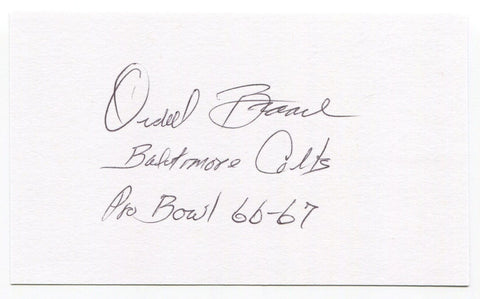 Ordell Braase
Baltimore Colts
Pro Bowl 66-67